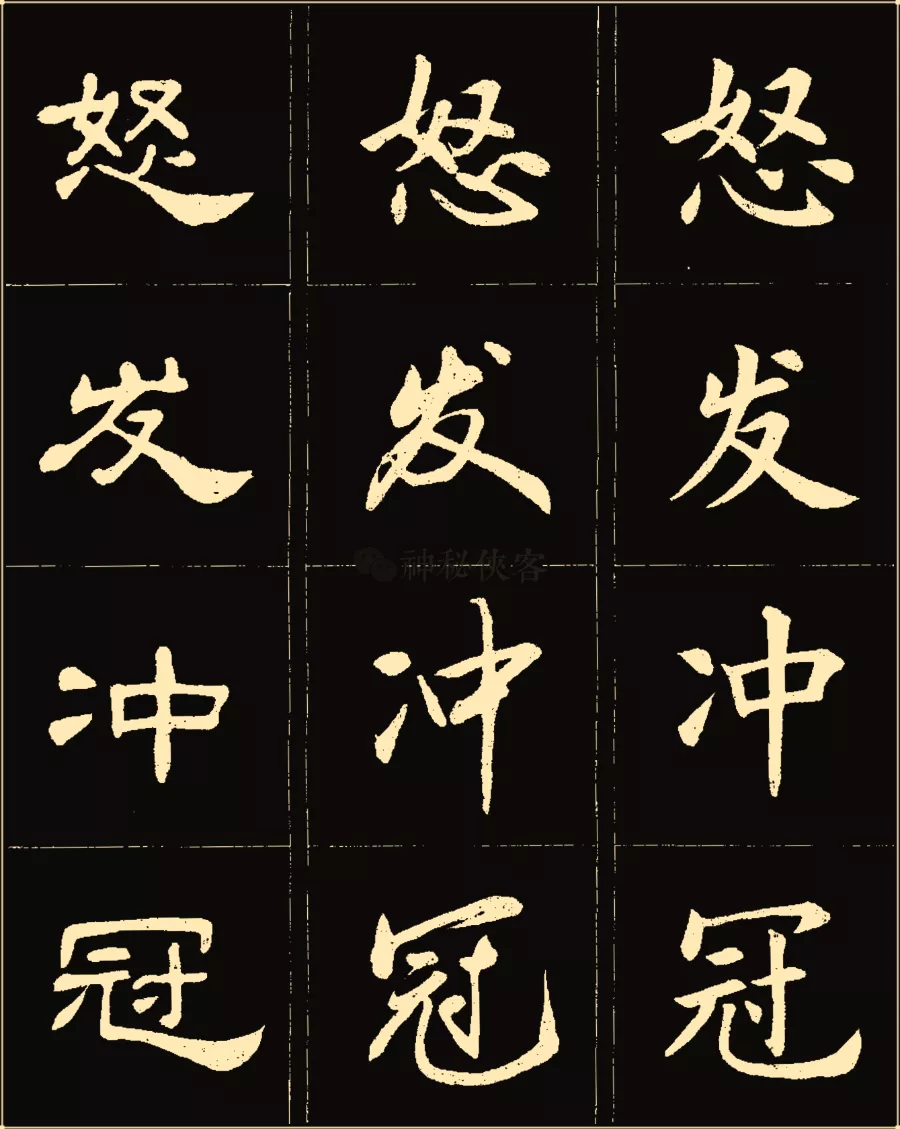 怒 怒 怒
发 发 发
神秘侠客
冲 冲 冲
冠 冠 冠